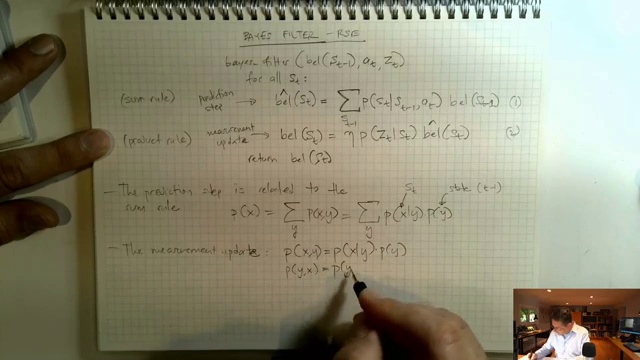 BAYES FILTER - RSE
bayes filter (bel(S_{t-1}), a_t, Z_t)
for all S_t:
(sum rule) prediction step → bel^(S_t) = ∑_{S_{t-1}} p(S_t|S_{t-1}, a_t) bel(S_{t-1}) (1)
(product rule) measurement update → bel(S_t) = η p(Z_t|S_t) bel^(S_t) (2)
return bel(S_t)
- The prediction step is related to the
S_t state (t-1)
sum rule p(x) = ∑_y p(x,y) = ∑_y p(x|y) p(y)
- The measurement update: p(x,y) = p(x|y)·p(y)
p(y,x) = p(y